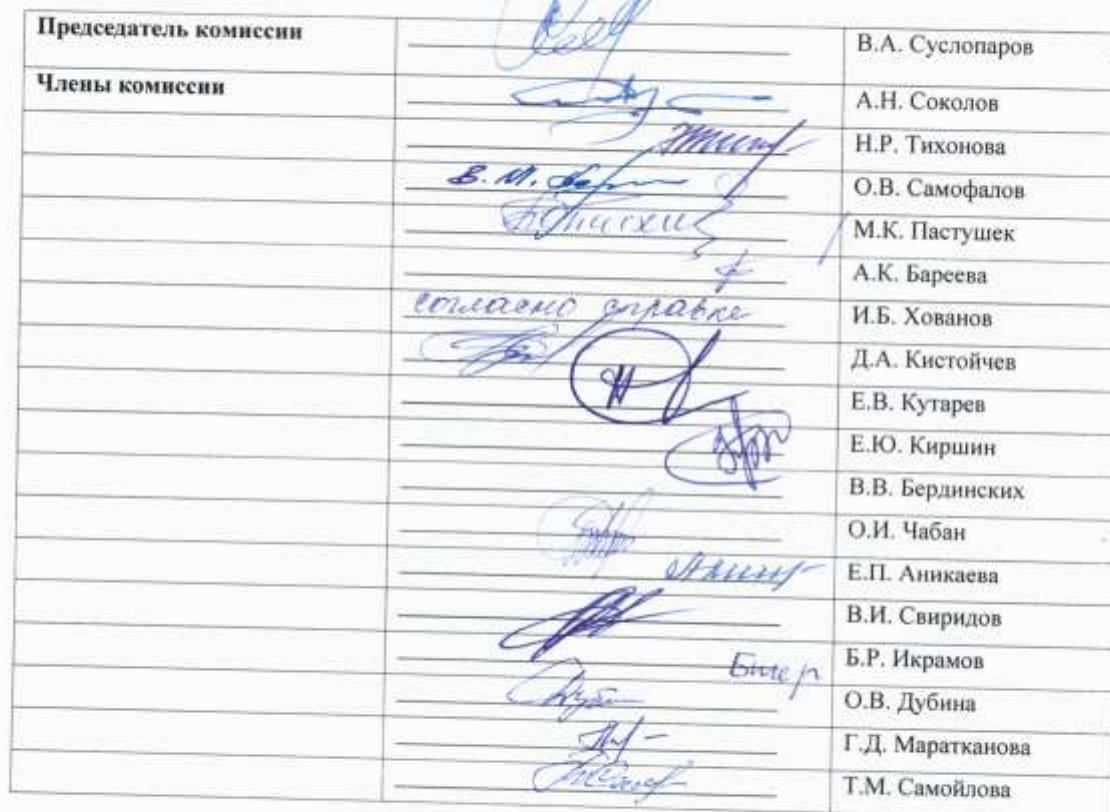 Председатель комиссии В.А. Суслопаров
Члены комиссии А.Н. Соколов
Н.Р. Тихонова
О.В. Самофалов
М.К. Пастушек
А.К. Бареева
согласно справке И.Б. Хованов
Д.А. Кистойчев
Е.В. Кутарев
Е.Ю. Киршин
В.В. Бердинских
О.И. Чабан
Е.П. Аникаева
В.И. Свиридов
Б.Р. Икрамов
О.В. Дубина
Г.Д. Маратканова
Т.М. Самойлова